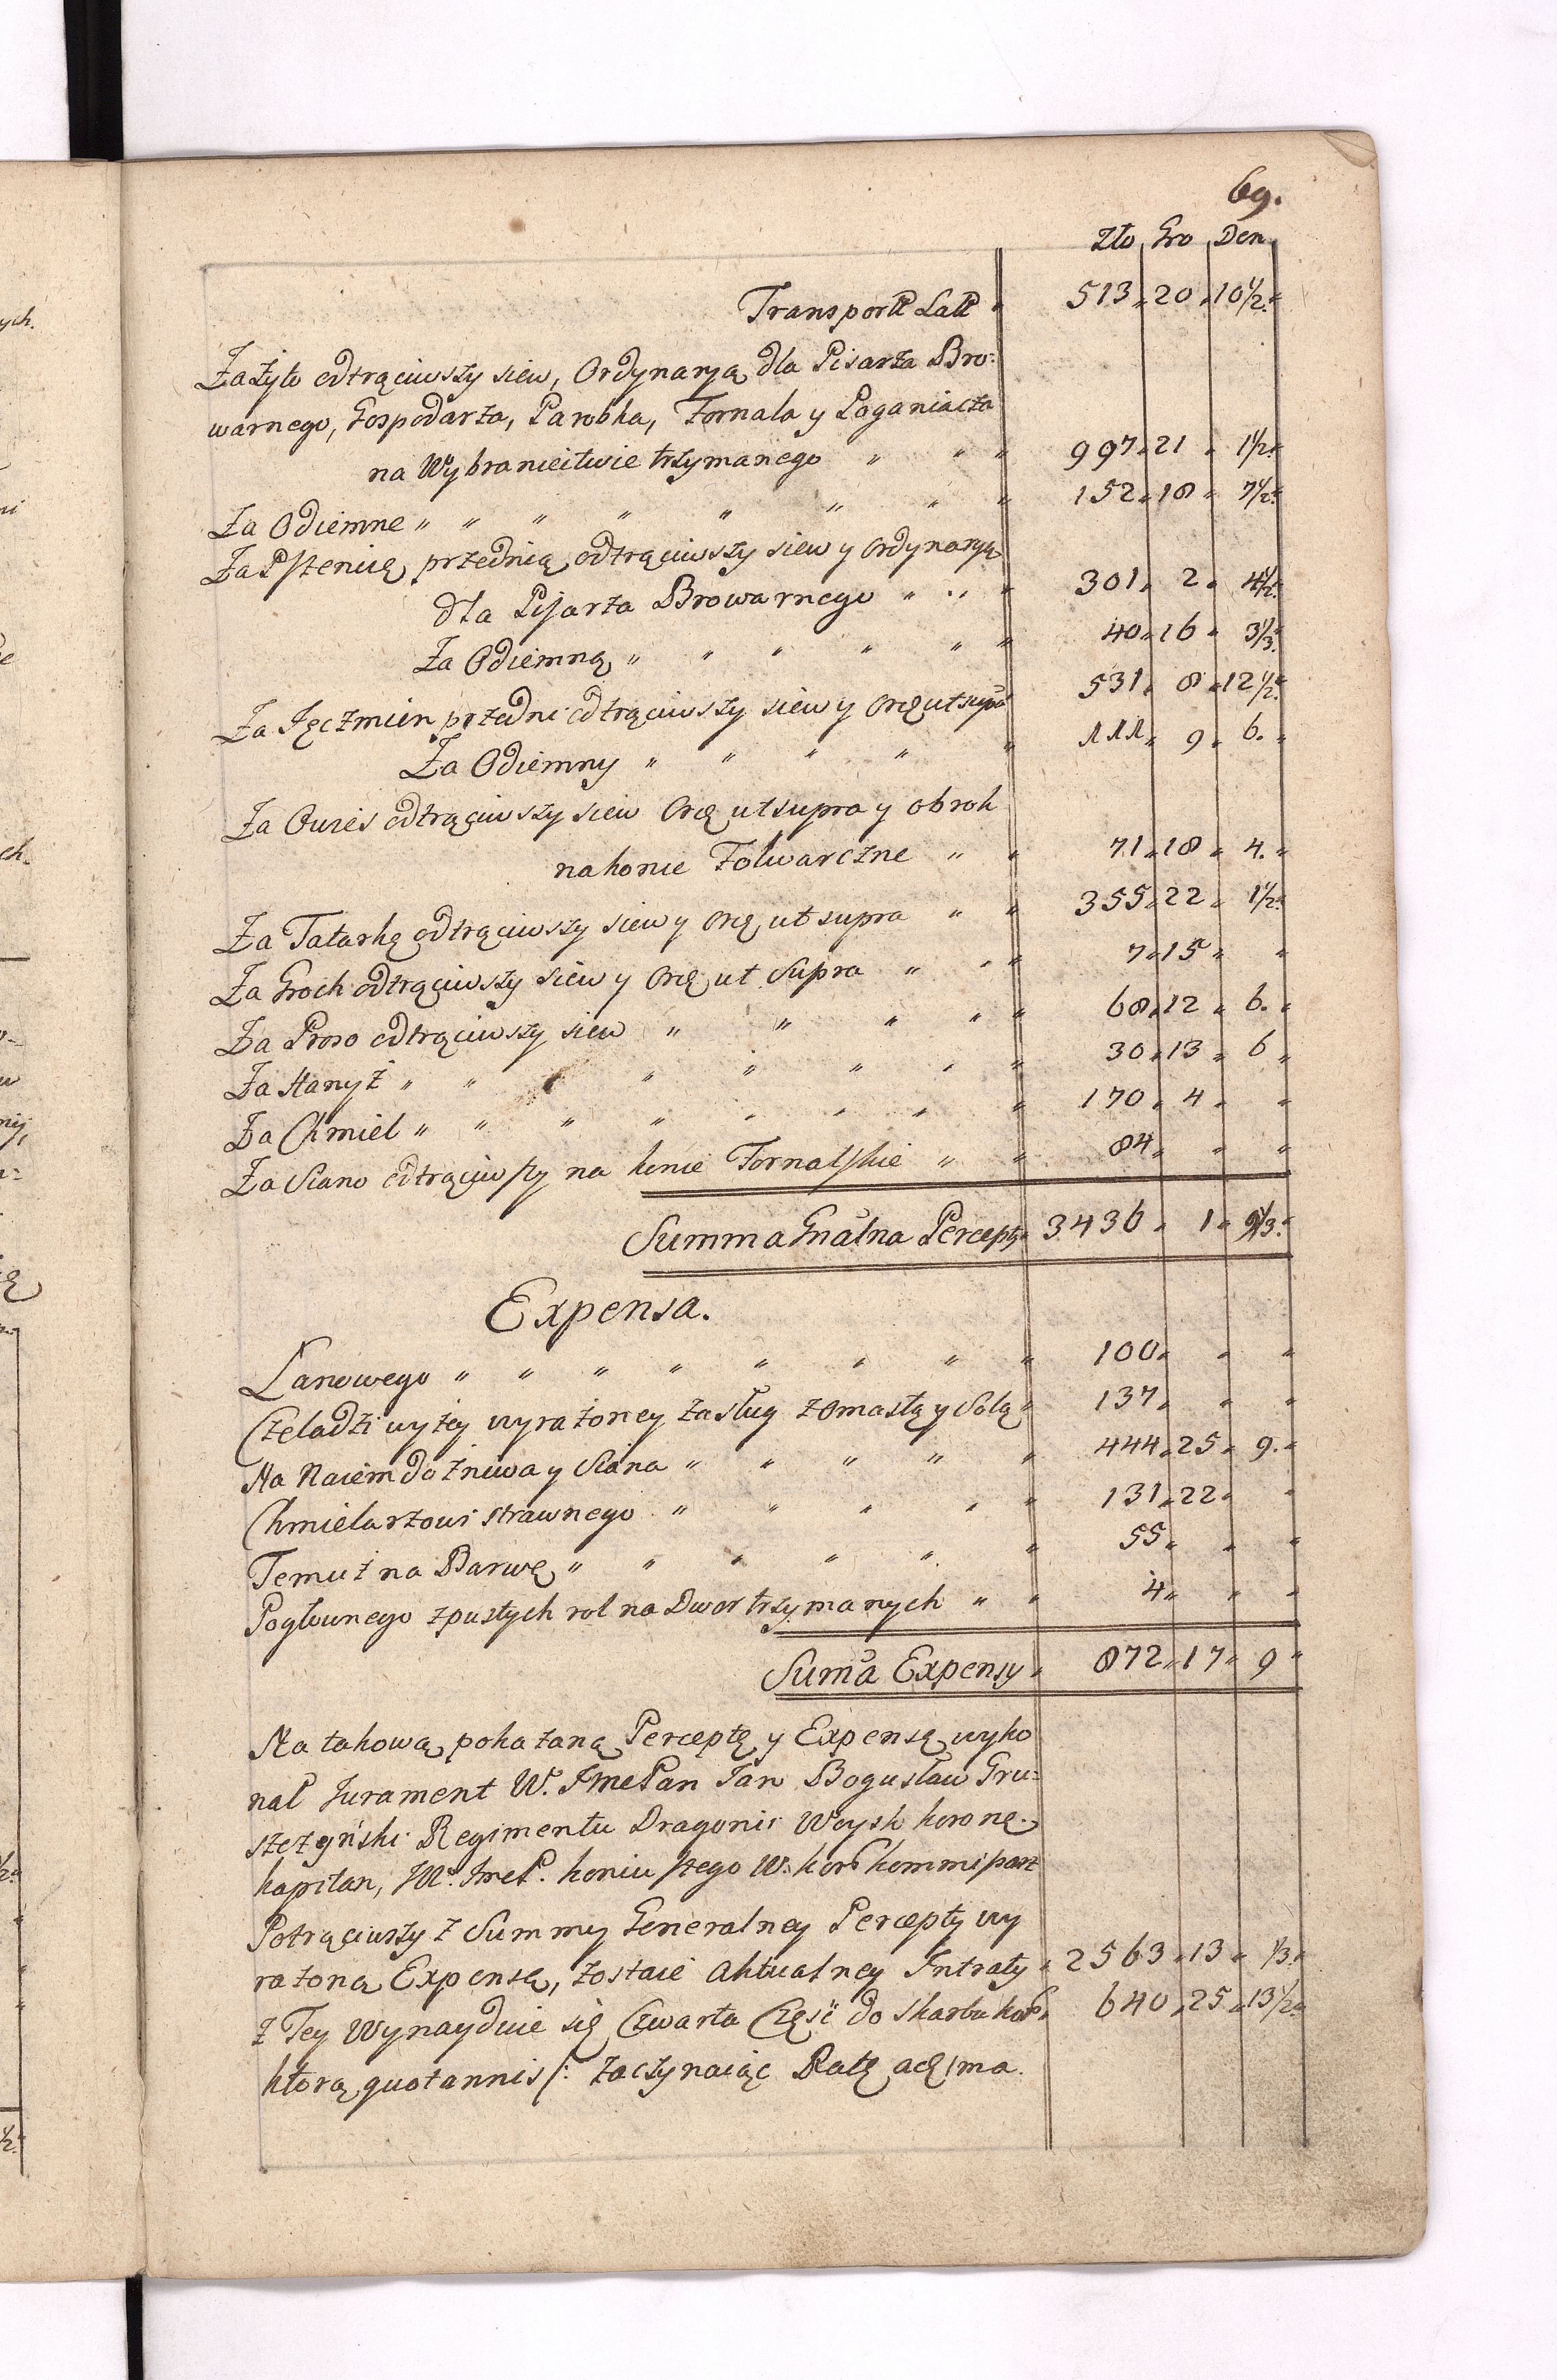 69.
Zło Gro Den
Transportt Latt " 513 " 20 " 10 1/2 "
Za Żyto odtrąciwszy siew, Ordynaryą dla Pisarza Bro:
warnego, Gospodarza, Parobka, Fornala y Poganiacza
na Wybraniectwie trzymanego " " " 997 " 21 " 1 1/2 "
Za Odiemne " " " " " " " " 152 " 18 " 7 1/2 "
Za Pszenicę przednią odtrąciwszy siew y Ordynaryą
dla Pisarza Browarnego " " " 301 " 2 " 4 1/2 "
Za Odiemną " " " " " " 40 " 16 " 3 1/3 "
Za Jęczmien przedni odtrąciwszy siew y Orę ut supra 531 " 8 " 12 1/2 "
Za Odiemny " " " " " 111 " 9 " 6. "
Za Owies odtrąciwszy siew Orę ut supra y obrok
na konie Folwarczne " " 71 " 18 " 4. "
Za Tatarkę odtrąciwszy siew y Orę ut supra " " 355 " 22 " 1 1/2 "
Za Groch odtrąciwszy siew y Orę ut Supra " " " 7 " 15 " "
Za Proso odtrąciwszy siew " " " " " 68 " 12 " 6. "
Za Hanyż " " " " " " " " 30 " 13 " 6 "
Za Chmiel " " " " " " " " 170 " 4 " "
Za Siano odtrąciwszy na konie Fornalskie " " 84 " " "
Summa Gnalna Percepty 3436 " 1 " 9 1/3 "
Expensa.
Łanowego " " " " " " " " 100 " " "
Czeladzi wyżey wyrażoney zasług z Omastą y Solą " 137 " " "
Na Naiem do żniwa y Siana " " " " " 444 " 25 " 9. "
Chmielarzowi strawnego " " " " " 131 " 22 " "
Temuż na Barwę " " " " " " 55 " " "
Pogłownego z pustych rol na Dwor trzymanych " " 4 " " "
Suma Expensy " 872 " 17 " 9 "
Na takową pokazaną Perceptę y Expensę wyko
nał Jurament W. Jme Pan Jan Bogusław Gru:
szczyński Regimentu Dragonii Woysk koronę.
kapitan, JW. Jme P. koniuszego W. kor kommissarz
Potrąciwszy z Summy Generalney Percepty wy
rażoną Expensę, zostaie Aktualney Intraty " 2563 " 13 " 1/3 "
z Tey Wynaydzie się Czwarta Częsć do Skarbu kor " 640 " 25 " 13 1/2 "
ktorą quotannis /: zaczynaiąc Ratę a